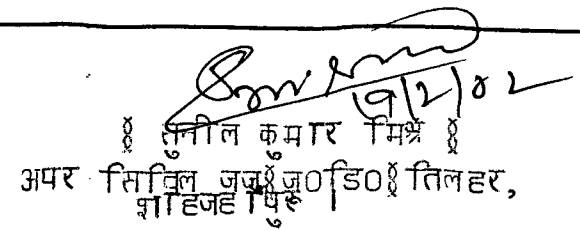 19/2/02
§ सुनील कुमार मिश्र §
अपर सिविल जज§जू०डि०§ तिलहर,
शाहजहाँपुर ।